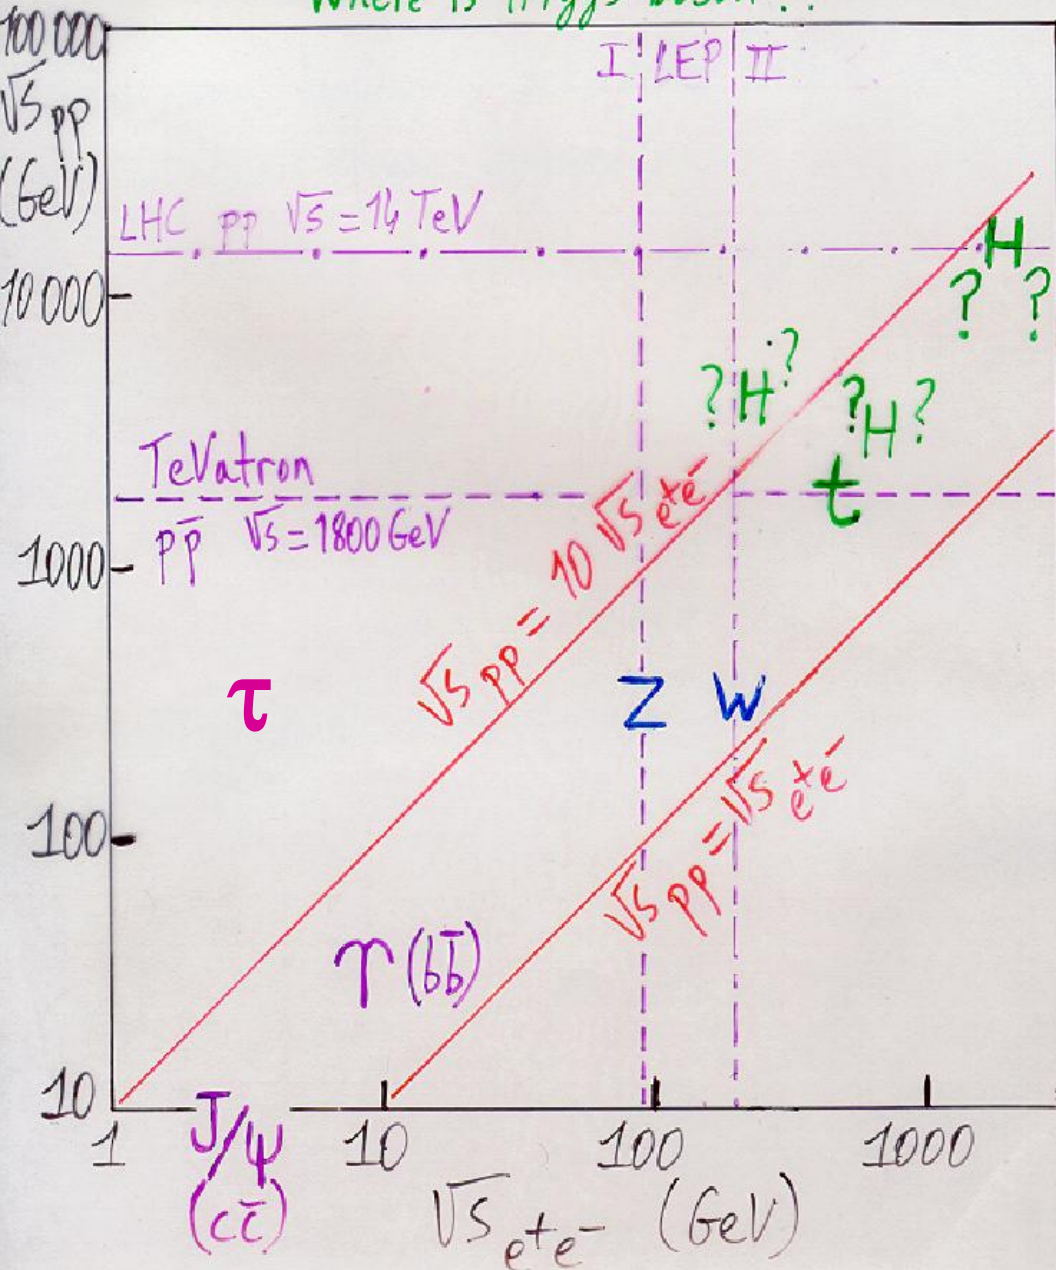 Where is Higgs boson ??
100 000
√s pp
(GeV)
I LEP II
LHC pp √s = 14 TeV
10 000
H
? ?
? H ?
? H ?
t
TeVatron
pp̄ √s = 1800 GeV
1000
√s pp = 10 √s e⁺e⁻
τ
Z W
√s pp = √s e⁺e⁻
100
ϒ (bb̄)
10
J/ψ
(cc̄)
1 10 100 1000
√s e⁺e⁻ (GeV)